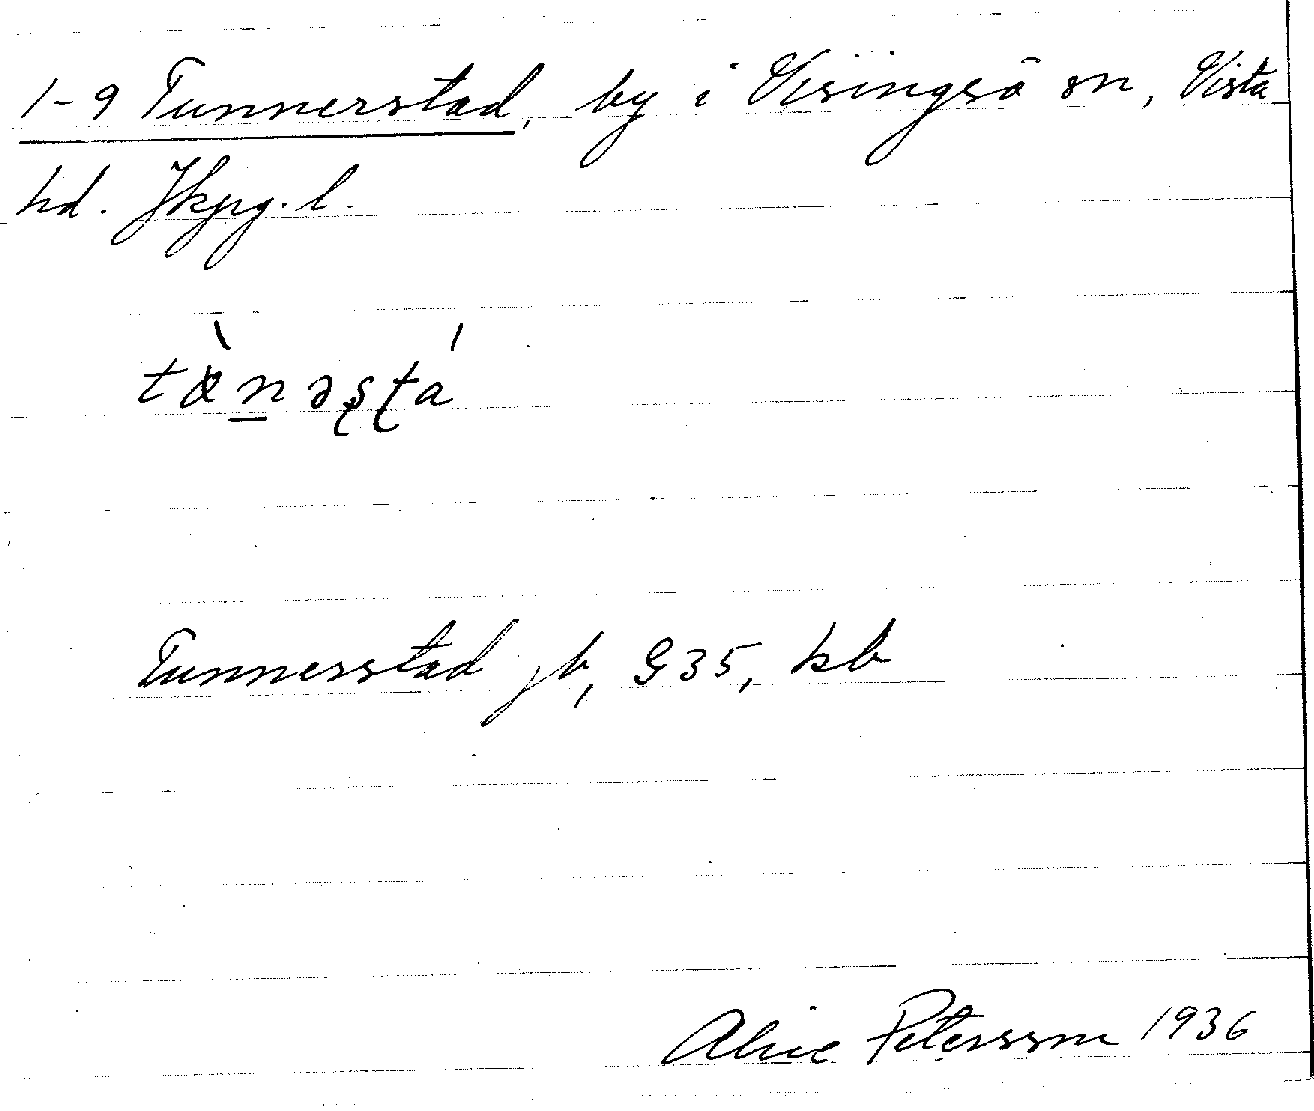 1-9 Tunnerstad, by i Visingsö sn, Vista
hd. Jkpg. l.
tæ̀nəʂʈá
Tunnerstad jb, G35, kb
Alice Petersson 1936